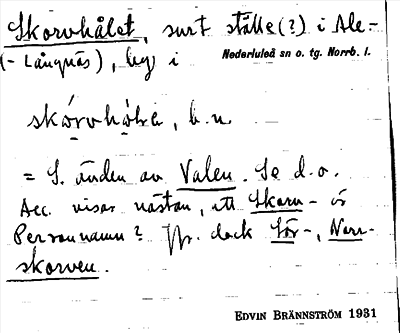 Skorvhålet, surt ställe(?) i Ale-
(-Långnäs), by i Nederluleå sn o. tg. Norrb. l.
skórvhòlæ, b. n.
= S. änden av Valen. Se d. o.
Acc. visar nästan, att Skorv- är
Personnamn? Jfr. dock Sör-, Norr-
skorven.
EDVIN BRÄNNSTRÖM 1931